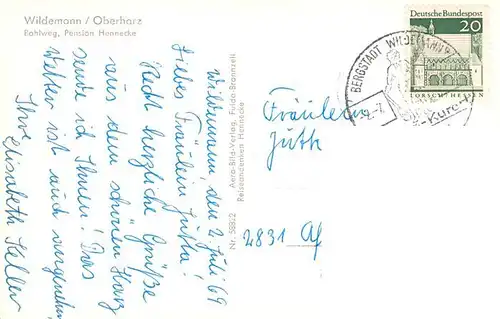 Wildemann / Oberharz
Bohlweg, Pension Hennecke
Wildemann, den 2. Juli 69
Liebe Fräulein Jutta!
Recht herzliche Grüße
aus dem schönen Harz
sende ich Ihnen! Das
Wetter ist auch
Ihre Elisabeth Keller
Nr. 5892
Aero-Bild-Verlag, Fulda-Bronnzell
Reiseandenken Hennecke
Deutsche Bundespost
20
LORSCH/HESSEN
BERGSTADT WILDEMANN
Kurort
Fräulein
Jutta
2831 Af